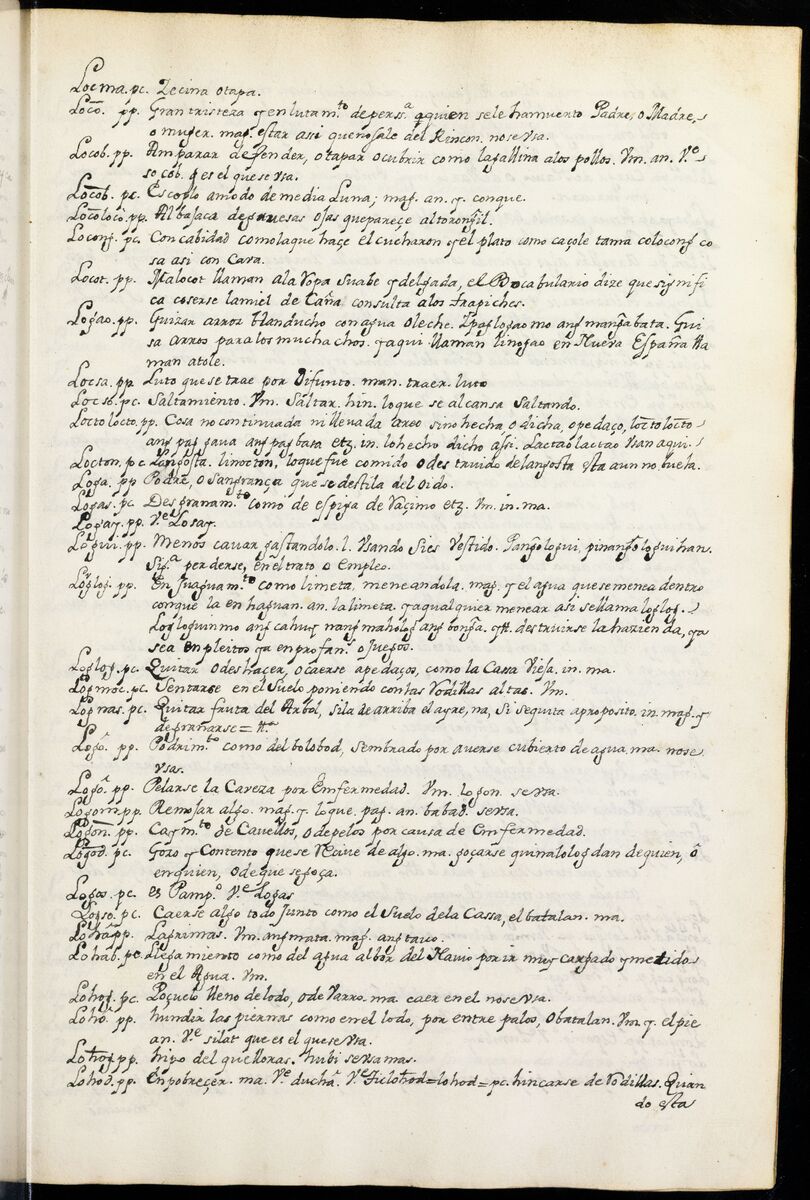 Locma. pc. Zecina otapa.
Loco͞. pp. Gran tristeza y enlutam.to de perss.a qͥquien sele ha muerto Padre, o Madre,
o muger. mag. estar assi que no sale del Rincon. nose vsa.
Locob. pp. Amparar defender, o tapar o cubrir como la gallina alos pollos. Vm. an. V.e
so,cob. q es el que se vsa.
Loco͞b. pc. Escoplo amodo de media Luna; mag. an. y conque.
Loco͞locô. pp. Albahaca de gruesas ojas que pareçe altorongil.
Locong. pc. Concabidad como la que haçe el cucharon y el plato como caçole tama colocong co
sa asi con Cara.
Locot. pp. Malocot llaman ala Ropa suabe y delgada, el Bocabulario dize que signifi
ca coserse lamiel de Caña consulta alos trapiches.
Logao. pp. Guizar arros blanducho con agua oleche. Ypag logao mo ang mang̃a bata. Gui
sa arros para los muchachos. y aqui llaman linogao en Nueva España lla
man atole.
Locsa. pp. Luto que se trae por Difunto. man. traer. luto
Locsô. pc. Saltamiento. Vm. Saltar. hin. loque se alcansa saltando.
Loctolocto. pp. Cosa no continuada ni llevada areo sino hecha o dicha, o pedaço, lo͞ctolocto
ang pag gaua ang pag basa etz. in. lo hecho dicho assi. Lactaolactao vsan aqui.
Locton. pc Langosta. linocton, loque fue comido o destruido delangosta esta aun no buela.
Loga. pp Podre, o sangraça que se destila del oido.
Logas. pc. Desgranam.to como de espiga de Raçimo etz. Vm. in. ma.
Logay. pp. V.e Losay.
Logui. pp. Menos cauar gastandolo. l. Vsando sies Vestido. Pang̃ologui, pinang̃ologuihan.
Sig.a perderse, en el trato o Empleo.
Loglog. pp. EnJuaguam.to como limeta, meneandola. mag. y el agua que se menea dentro
conque la enhaguan. an. la limeta. y a qualquier menear asi se llama loglog.
Logloguin mo ang cahuy nang maholog ang bong̃a. y tt. destruirse la hazienda, ya
sea en pleitos ya en profan.s o Juegos.
Loglog. pc. Quitar o deshacer, o caerse apedaços, como la Cassa Vieja. in. ma.
Logmoc. pc. Sentarse en el suelo poniendo con las Rodillas altas. Vm.
Lognas. pc. Quitar fruta del Arbol, sila dearriba el ayre, na, si se quita aproposito. in. mag. y
desgreñarse = tt.a
Logô. pp. Podrim.to como del bolobod, sembrado por averse cubierto de agua. ma. nose
vsas.
Logô. pp. Pelarse la Caveza por Emfermedad. Vm. logon. se vsa.
Logom͞. pp. Remojar algo. mag. y loque, pag. an. babad. sevsa.
Logon͞. pp. Caym.to de Cavellos, o de pelos por causa de Emfermedad.
Logo͞d. pc. Gozo y Contento que se Recive de algo. ma. goçarse quinalologdan de quien, ô
en quien, o de que segoça.
Logos. pc. es Pamp.o V.e Logas
Logso. pc. Caerse algo todo Junto como el Suelo dela Cassa, el batalan. ma.
Lohâ pp. Lagrimas. Vm. ang mata. mag. ang tauo.
Lohab. pc. Llegamiento como del agua al bor del Navio por ir muy cargado y metidos
en el Agua. Vm.
Lohog. pc. Poçuelo lleno de lodo, o de varro. ma caer en el nose vsa.
Lohô. pp. hundir las piernas como en el lodo, por entre palos, o batalan. Vm. y. el pie
an. V.e silat que es el que se vsa.
Lohog͞. pp. hipo del que lloras. hubi se vsa mas.
Lohod. pp. Enpobreçer. ma. V.e duchâ. V.e ticlohod = lohod = pc. hincarse de Rodillas. Quan
do esta